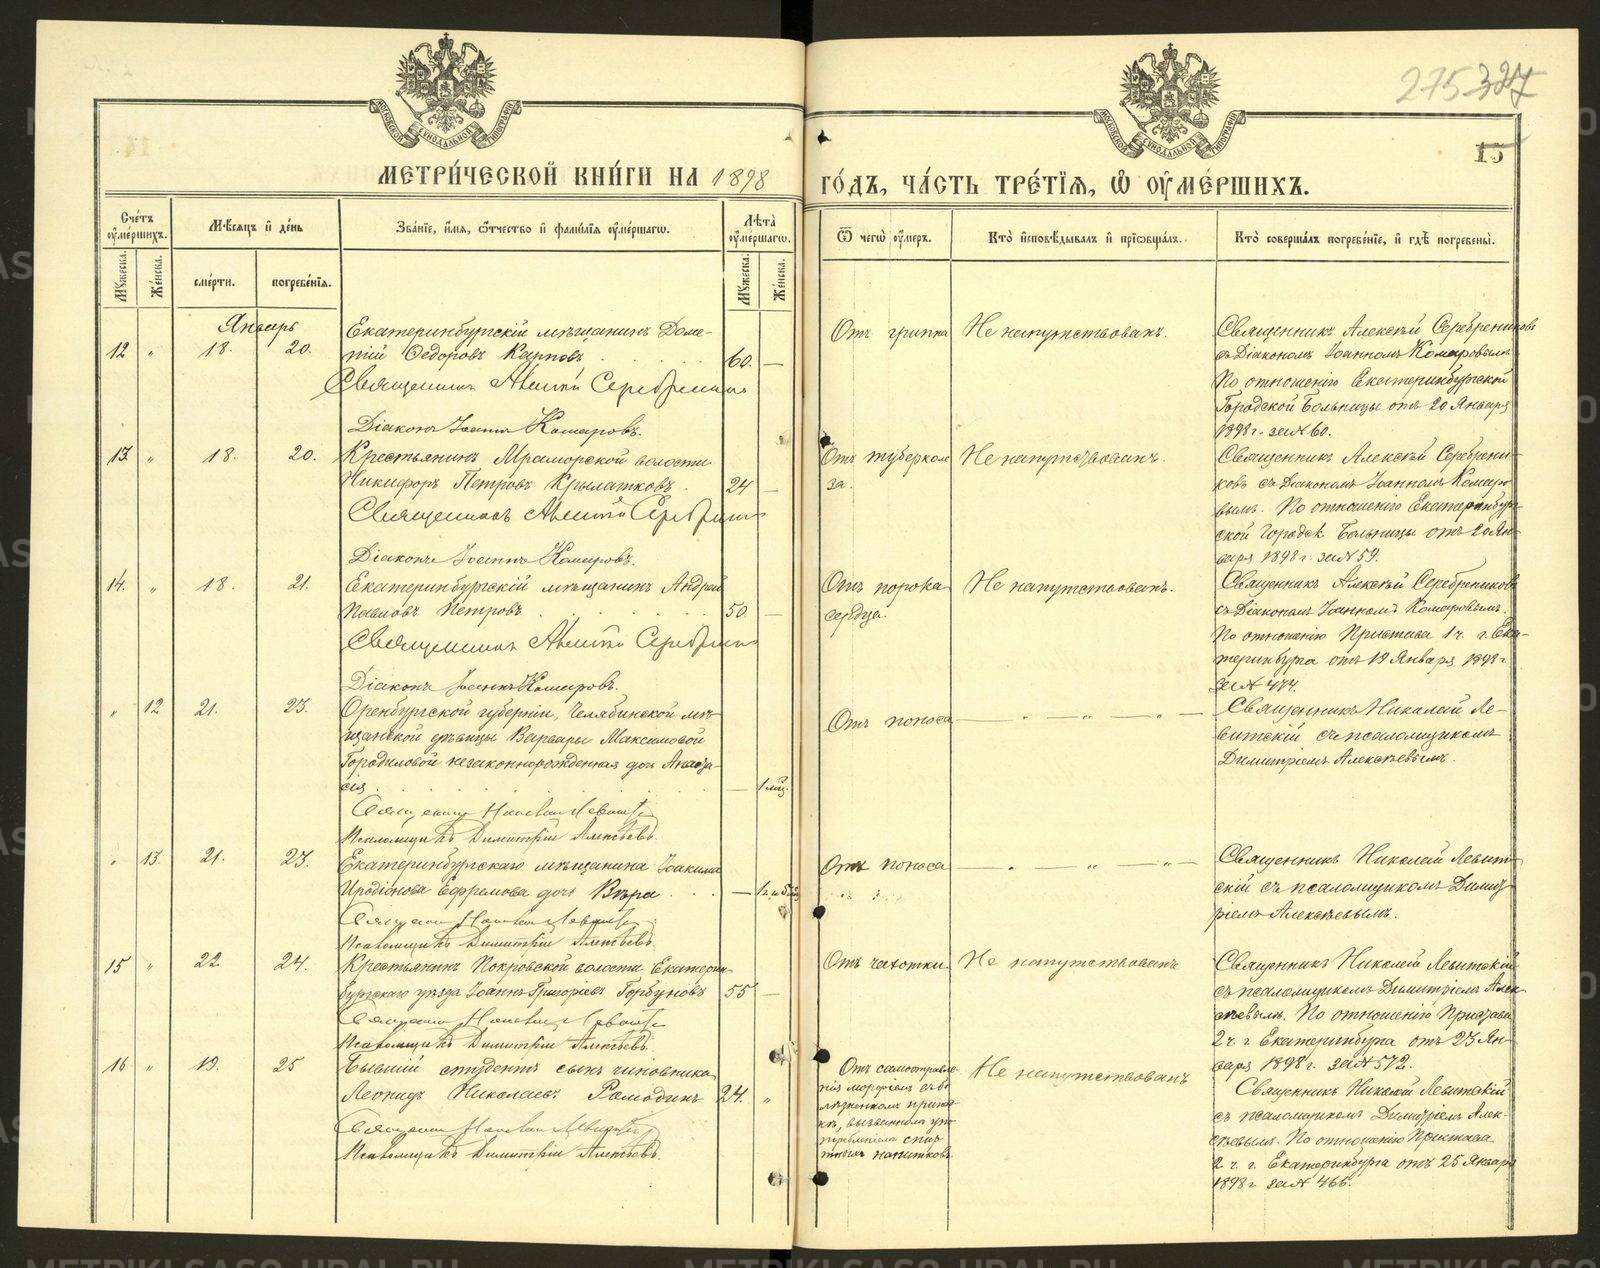 275 327
15
МОСКОВСКОЙ СУНОДАЛЬНОЙ ТИПОГРАФІИ
МОСКОВСКОЙ СУНОДАЛЬНОЙ ТИПОГРАФІИ
МЕТРИ́ЧЕСКОЙ КНИ́ГИ НА 1898 ГО́ДЪ, ЧА́СТЬ ТРЕ́ТІЯ, Ѡ ОУМЕ́РШИХЪ.
Сче́тъ оуме́ршихъ.
Мѣсяцъ и де́нь
Зва́ніе, и́мя, ѿтчество и фами́лія оуме́ршагѡ.
Лѣта̀ оуме́ршагѡ.
Ѿ чегѡ̀ оу́меръ.
Кто̀ исповѣ́дывалъ и пріѡбща́лъ.
Кто̀ соверша́лъ погребе́ніе, и гдѣ̀ погребены̀.
Му́жеска.
Же́нска.
сме́рти.
погребе́нія.
Му́жеска.
Же́нска.
Январь
12 „ 18. 20.
Екатеринбургскій мѣщанинъ Доме-
тій Ѳедоровъ Карповъ 60. —
Священникъ Алексѣй Серебренниковъ
Діаконъ Іоаннъ Комаровъ.
Отъ гриппа
Не напутствованъ.
Священникъ Алексѣй Серебрениковъ
съ Діакономъ Іоанномъ Комаровымъ
По отношенію Екатеринбургской
Городской Больницы отъ 20 Января
1898 г. за № 60.
13. „ 18. 20.
Крестьянинъ Мраморской волости
Никифоръ Петровъ Крылатковъ. 24 —
Священникъ Алексѣй Серебренниковъ
Діаконъ Іоаннъ Комаровъ.
Отъ туберколе
за.
Не напутствованъ.
Священникъ Алексѣй Серебрени-
ковъ съ Діакономъ Іоанномъ Комаро-
вымъ. По отношенію Екатеринбург-
ской Городск. Больницы отъ 20 Ян-
варя 1898 г. за № 59.
14. „ 18. 21.
Екатеринбургскій мѣщанинъ Андрей
Павловъ Петровъ 50. —
Священникъ Алексѣй Серебренниковъ
Діаконъ Іоаннъ Комаровъ.
Отъ порока
сердца.
Не напутствованъ.
Священникъ Алексѣй Серебрениковъ
съ Діакономъ Іоанномъ Комаровымъ.
По отношенію Пристава 1 ч. г. Ека-
теринбурга отъ 19 Января 1898 г.
за № 474.
„ 12 21. 23.
Оренбургской губерніи, Челябинской мѣ-
щанской дѣвицы Варвары Максимовой
Городиловой незаконнорожденная дочь Анаста-
сія — 1 мѣс.
Священникъ Николай Левитскій
Псаломщикъ Димитрій Алексѣевъ.
Отъ поноса
— „ — „ — „ —
Священникъ Николай Ле-
витскій съ псаломщикомъ
Димитріемъ Алексѣевымъ.
„ 13. 21. 23.
Екатеринбургскаго мѣщанина Іоакима
Иродіонова Ефремова дочь Вѣра —
Священникъ Николай Левитскій
Псаломщикъ Димитрій Алексѣевъ.
Отъ поноса
— „ — „ — „ —
Священникъ Николай Левит-
скій съ псаломщикомъ Димит-
ріемъ Алексѣевымъ.
15 „ 22 24.
Крестьянинъ Покровской волости Екатерин-
бургскаго уѣзда Іоаннъ Григоріевъ Горбуновъ 55 —
Священникъ Николай Левитскій
Псаломщикъ Димитрій Алексѣевъ.
Отъ чахотки.
Не напутствованъ
Священникъ Николай Левитскій
съ псаломщикомъ Димитріемъ Алек-
сѣевымъ. По отношенію Пристава
2 ч. г. Екатеринбурга отъ 23 Ян-
варя 1898 г. за № 572.
16 „ 19. 25
Бывшій студентъ сынъ чиновника
Леонидъ Николаевъ Рамодинъ 24. „
Священникъ Николай Левитскій
Псаломщикъ Димитрій Алексѣевъ.
Отъ самоотравле-
нія морфіемъ въ бо-
лѣзненномъ припад-
кѣ, вызванномъ упо-
требленіемъ спир-
тныхъ напитковъ.
Не напутствованъ
Священникъ Николай Левитскій
съ псаломщикомъ Димитріемъ Алек-
сѣевымъ. По отношенію Пристава
2 ч. г. Екатеринбурга отъ 25 Января
1898 г. за № 466.